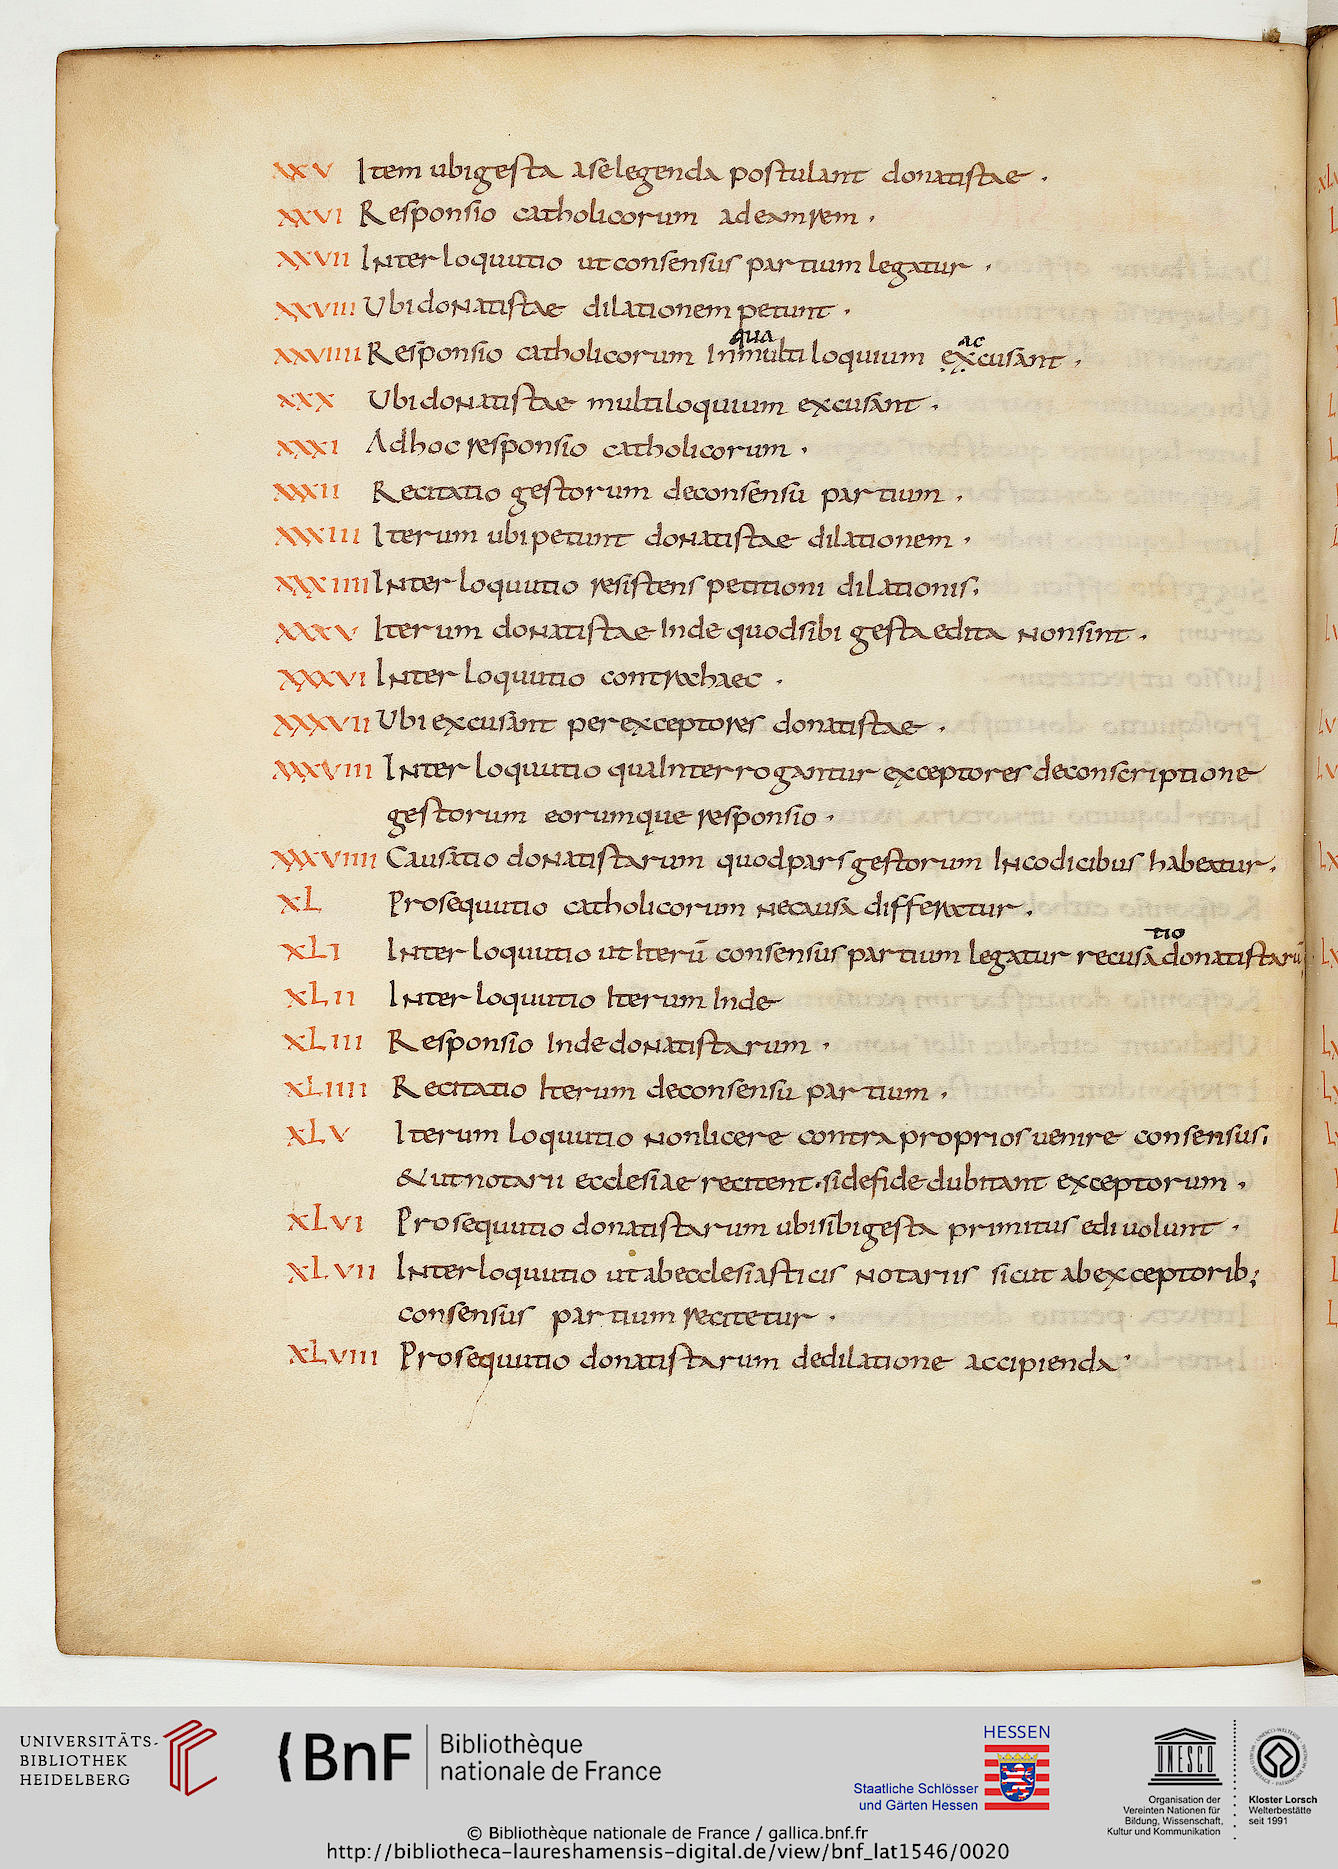 XXV Item ubi gesta a se legenda postulant donatistae .
XXVI Responsio catholicorum ad eam rem .
XXVII Interloquutio ut consensus partium legatur .
XXVIII Ubi donatistae dilationem petunt .
qua ac
XXVIIII Responsio catholicorum In multiloquium excusant .
XXX Ubi donatistae multiloquium excusant .
XXXI Ad hoc responsio catholicorum .
XXXII Recitatio gestorum de consensu partium .
XXXIII Iterum ubi petunt donatistae dilationem .
XXXIIII Interloquutio resistens petitioni dilationis .
XXXV Iterum donatistae Inde quod sibi gesta edita non sint .
XXXVI Interloquutio contra haec .
XXXVII Ubi excusant per exceptores donatistae .
XXXVIII Interloquutio qua Interrogantur exceptores de conscriptione
gestorum eorumque responsio .
XXXVIIII Causatio donatistarum quod pars gestorum In codicibus habeatur .
XL Prosequutio catholicorum ne causa differatur .
tio
XLI Interloquutio ut Iterū consensus partium legatur recusa donatistarū
XLII Interloquutio Iterum Inde
XLIII Responsio Inde donatistarum .
XLIIII Recitatio Iterum de consensu partium .
XLV Iterum loquutio non licere contra proprios uenire consensus .
& ut notarii ecclesiae recitent . si de fide dubitant exceptorum .
XLVI Prosequutio donatistarum ubi sibi gesta primitus edi uolunt .
XLVII Interloquutio ut ab ecclesiasticis notariis sicut ab exceptorib;
consensus partium recitetur .
XLVIII Prosequutio donatistarum de dilatione accipienda .
UNIVERSITÄTS-
BIBLIOTHEK
HEIDELBERG
BnF
Bibliothèque
nationale de France
HESSEN
Staatliche Schlösser
und Gärten Hessen
UNESCO
Organisation der
Vereinten Nationen für
Bildung, Wissenschaft,
Kultur und Kommunikation
Kloster Lorsch
Welterbestätte
seit 1991
© Bibliothèque nationale de France / gallica.bnf.fr
http://bibliotheca-laureshamensis-digital.de/view/bnf_lat1546/0020